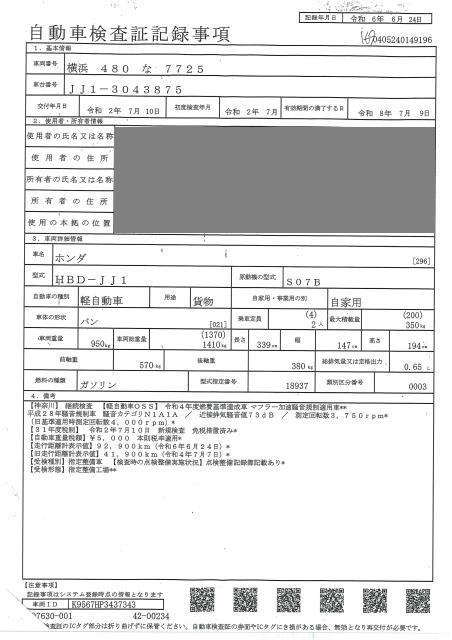 記録年月日 令和 6年 6月 24日
自動車検査証記録事項
0405240149196
1．基本情報
車両番号 横浜 480 な 7725
車台番号 JJ1-3043875
交付年月日 令和 2年 7月 10日 初度検査年月 令和 2年 7月 有効期間の満了する日 令和 8年 7月 9日
2．使用者・所有者情報
使用者の氏名又は名称
使用者の住所
所有者の氏名又は名称
所有者の住所
使用の本拠の位置
3．車両詳細情報
車名 ホンダ [296]
型式 HBD-JJ1 原動機の型式 S07B
自動車の種別 軽自動車 用途 貨物 自家用・事業用の別 自家用
車体の形状 バン [021] 乗車定員 (4) 2人 最大積載量 (200) 350kg
車両重量 950kg 車両総重量 (1370) 1410kg 長さ 339cm 幅 147cm 高さ 194cm
前軸重 570kg 後軸重 380kg 総排気量又は定格出力 0.65 L
燃料の種類 ガソリン 型式指定番号 18937 類別区分番号 0003
4．備考
【神奈川】 継続検査 【軽自動車OSS】 令和4年度燃費基準達成車 マフラー加速騒音規制適用車**
平成28年騒音規制車 騒音カテゴリN1A1A ／ 近接排気騒音値73dB ／ 測定回転数3，750rpm*
（旧基準適用時測定回転数4，000rpm）*
【31年度税制】 令和2年7月10日 新規検査 免税措置済み*
【自動車重量税額】¥5，000 本則税率適用*
【走行距離計表示値】92，900km（令和6年6月24日）*
【旧走行距離計表示値】41，900km（令和4年7月7日）*
【受検種別】指定整備車 【検査時の点検整備実施状況】点検整備記録簿記載あり*
【受検形態】指定整備工場**
【注意事項】
記録事項はシステム登録時点の情報となります
車両ID K9567HP3437343
07630-001 42-00234
検査証のICタグ部分は折り曲げずに保管ください。自動車検査証の券面やICタグにき損がある場合、無効となり再交付が必要です。